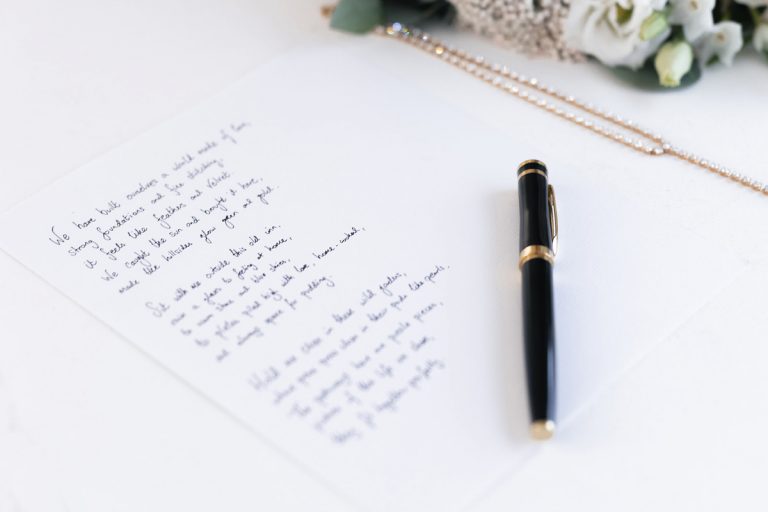 We have built ourselves a world made of love,
strong foundations and fine stitching,
it feels like feather and velvet.
We caught the sun and bought it here,
made the hillsides glow green and gold.
Sit with me outside this old inn,
over a glass to being at home,
to worn shoes and blue shoes,
to plates piled high with love, home-cooked,
and always space for pudding.
Hold me close in these wild gardens,
where grow in their pods like pearls,
The pathways have our puzzle pieces,
picture of the life we chose
they fit together perfectly